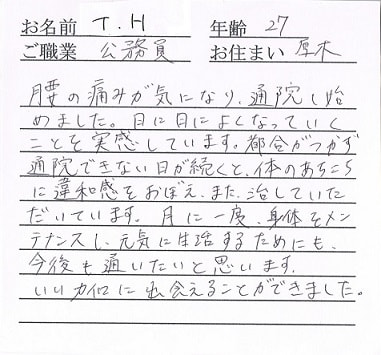 お名前 T.H 年齢 27
ご職業 公務員 お住まい 厚木
腰の痛みが気になり、通院し始
めました。日に日によくなっていく
ことを実感しています。都合がつかず
通院できない日が続くと、体のあちこち
に違和感をおぼえ、また、治していた
だいています。月に一度、身体をメン
テナンスし、元気に生活するためにも、
今後も通いたいと思います。
いいカイロに出会えることができました。